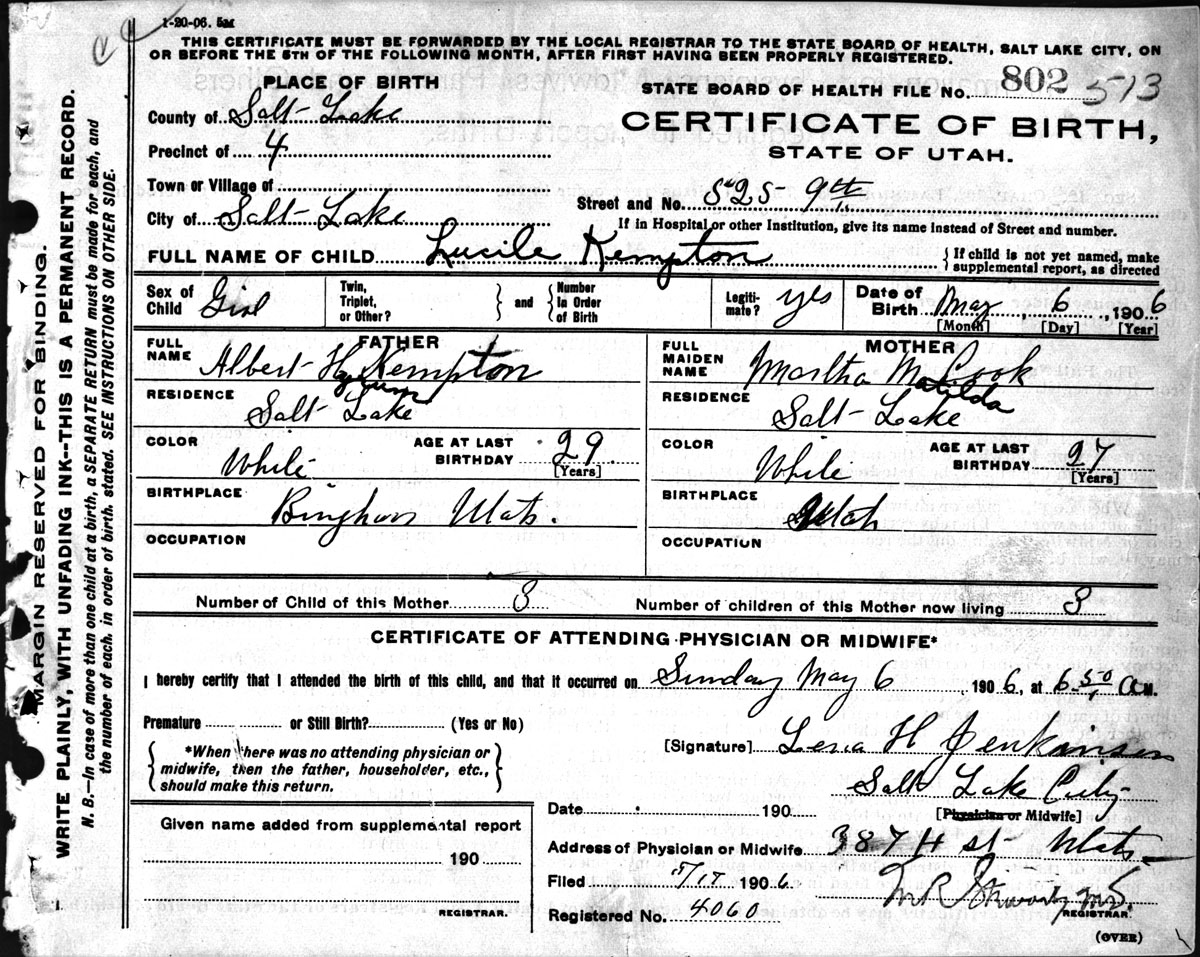 1-20-06. 5M
THIS CERTIFICATE MUST BE FORWARDED BY THE LOCAL REGISTRAR TO THE STATE BOARD OF HEALTH, SALT LAKE CITY, ON
OR BEFORE THE 5TH OF THE FOLLOWING MONTH, AFTER FIRST HAVING BEEN PROPERLY REGISTERED.
PLACE OF BIRTH
STATE BOARD OF HEALTH FILE No. 802 513
County of Salt Lake
CERTIFICATE OF BIRTH,
Precinct of 4
STATE OF UTAH.
Town or Village of
Street and No. 525 9th
City of Salt Lake
If in Hospital or other Institution, give its name instead of Street and number.
FULL NAME OF CHILD Lucile Kempton { If child is not yet named, make
supplemental report, as directed
Sex of Child Girl Twin, Triplet, or Other? } and { Number In Order of Birth Legiti-mate? yes Date of Birth May 6, 1906
[Month] [Day] [Year]
FATHER
FULL NAME Albert Hyrum Kempton
RESIDENCE Salt Lake
COLOR White AGE AT LAST BIRTHDAY 29 [Years]
BIRTHPLACE Bingham Utah.
OCCUPATION
MOTHER
FULL MAIDEN NAME Martha Matilda Cook
RESIDENCE Salt Lake
COLOR White AGE AT LAST BIRTHDAY 27 [Years]
BIRTHPLACE Utah
OCCUPATION
Number of Child of this Mother 3 Number of children of this Mother now living 3
CERTIFICATE OF ATTENDING PHYSICIAN OR MIDWIFE*
I hereby certify that I attended the birth of this child, and that it occurred on Sunday May 6, 1906, at 6 50 A.M.
Premature or Still Birth? (Yes or No)
{ *When there was no attending physician or
midwife, then the father, householder, etc.,
should make this return. }
[Signature] Lena H Jenkinsen
Salt Lake City
[Physician or Midwife]
Date 190
Given name added from supplemental report
190
REGISTRAR.
Address of Physician or Midwife 387 H st Utah
Filed 1906
Registered No. 4060
REGISTRAR.
(OVER)
MARGIN RESERVED FOR BINDING.
WRITE PLAINLY, WITH UNFADING INK--THIS IS A PERMANENT RECORD.
N. B.—In case of more than one child at a birth, a SEPARATE RETURN must be made for each, and
the number of each, in order of birth, stated. SEE INSTRUCTIONS ON OTHER SIDE.